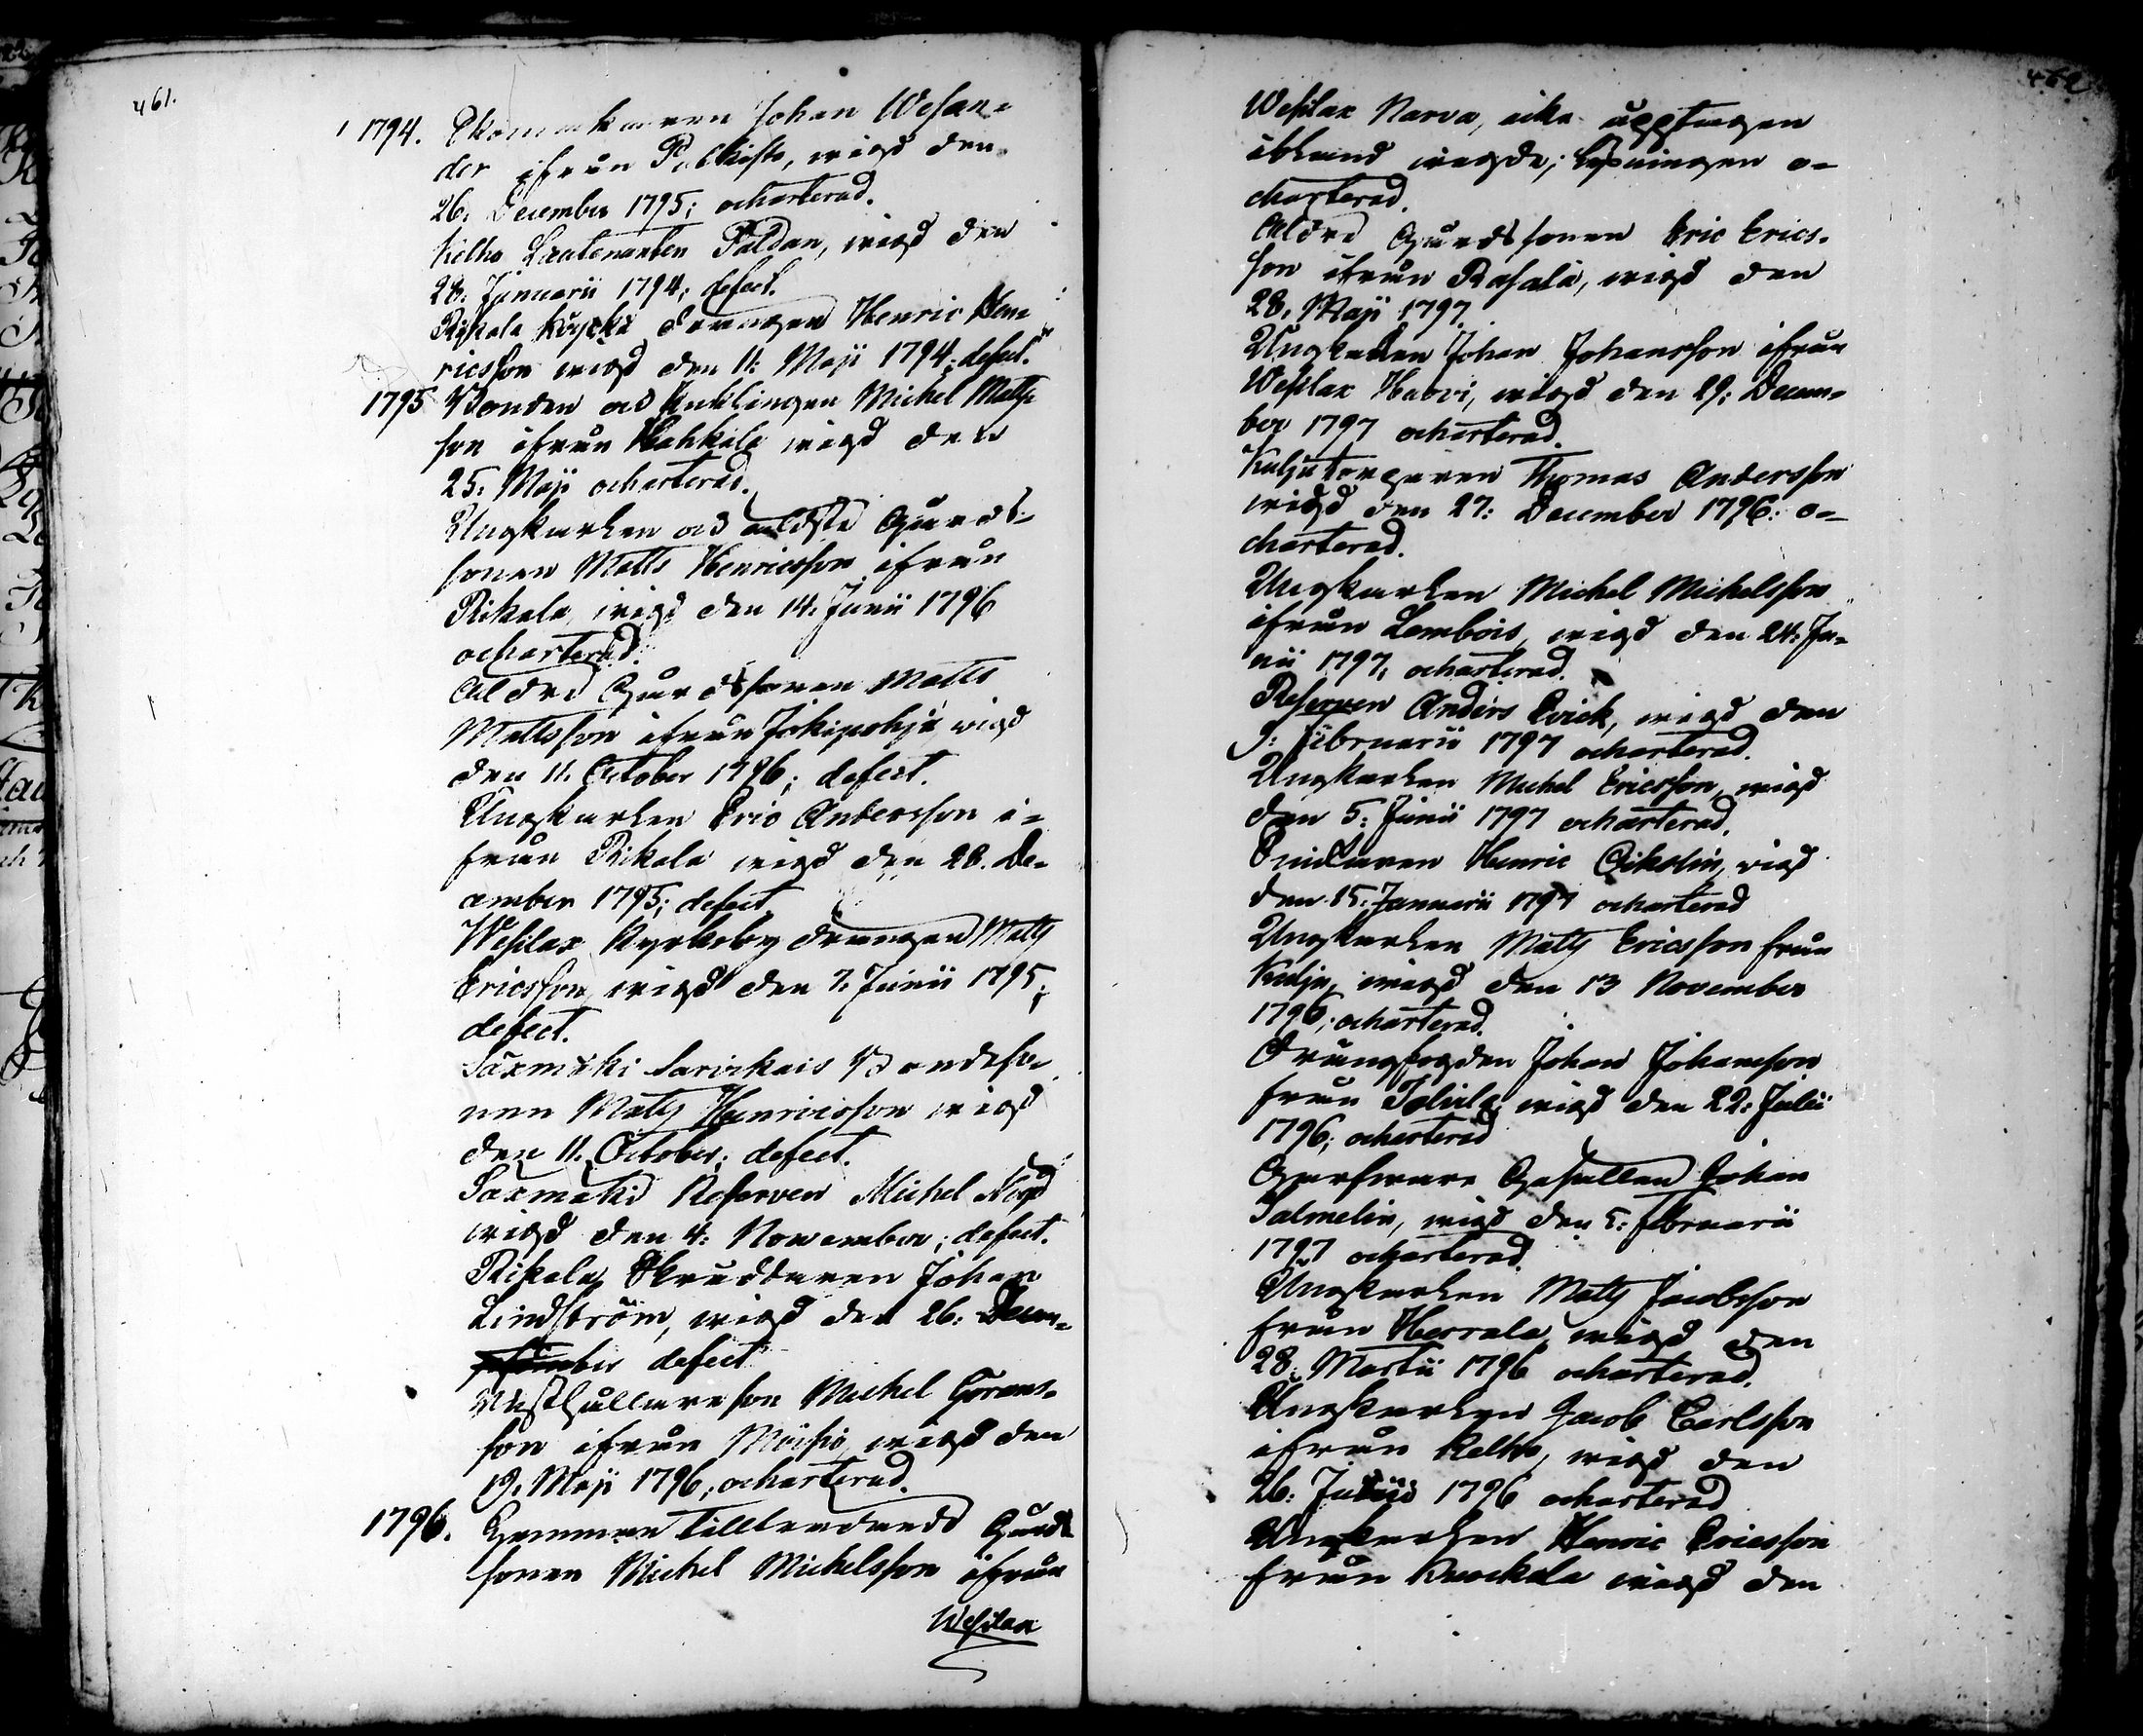 461.
1794. Skomakaren Johan Wesan-
der ifrån wigd den
26. December 1795; ocharterad.
Kelho Lieutenanten Paldan, wigd den
28. Januarii 1794; defect.
Rikala drängen Henric Hen-
ricsson wigd den 11. Maji 1794; defect.
1795 Bonden och Enklingen Michel Matts
son ifrån Hahkala wigd den
25. Maji ocharterad.
Ungkarlen och äldste Gårds-
sonen Matts Henricsson ifrån
Rikala, wigd den 14. Junii 1796
ocharterad.
Äldre Gårdssonen Matts
Mattsson ifrån Jokipohja wigd
den 11. October 1796; defect.
Ungkarlen Eric Andersson i-
från Rikala wigd den 28. De-
cember 1795; defect
Wesilax Kyrkoby drängen Matts
Ericsson, wigd den 7. Junii 1795;
defect.
Säxmäki Sarvikais Bondeso-
nen Matts Henricsson wigd
den 11. October; defect.
Säxmäki Reserven Michel Nöjd
wigd den 4: November; defect.
Rikala Skräddaren Johan
Lindström, wigd den 26: Decem-
ber defect
Rusthållareson Michel Görans-
son ifrån Moisio, wigd den
19. Maji 1796, ocharterad.
1796. Hemman tillträdande Gårds
sonen Michel Michelsson ifrån
Wesilax
462
Wesilax Narva, icke upptagen
ibland wigde; Lysningen o-
charterad.
Äldre Gårdssonen Eric Erics-
son ifrån Rasala, wigd den
28. Maji 1797.
Ungkarlen Johan Johansson ifrån
Wesilax Haovi, wigd den 29: Decem-
ber 1797 ocharterad.
Kulju torparen Thomas Andersson
wigd den 27: December 1796: o-
charterad.
Ungkarlen Michel Michelsson
ifrån Lembois, wigd den 24: Ju-
nii 1797, ocharterad.
Reserven Anders Qvick, wigd den
9: Februarii 1797 ocharterad.
Ungkarlen Michel Ericsson, wigd
den 5: Junii 1797 ocharterad.
Henric wigd
den 15. Januarii 1797 ocharterad
Ungkarlen Matts Ericsson från
Kulju, wigd den 13 November
1796; ocharterad.
Drängfogden Johan Johansson
från Tolvila, wigd den 22: Julii
1796; ocharterad
Garfware Gesällen Johan
Salmelin, wigd den 5: Februarii
1797 ocharterad.
Ungkarlen Matts Jacobsson
från Herrala, wigd den
28: Martii 1796 ocharterad.
Ungkarlen Jacob Carlsson
ifrån Kelho, wigd den
26: 1796 ocharterad
Ungkarlen Henric Ericsson
från Kuockala wigd den